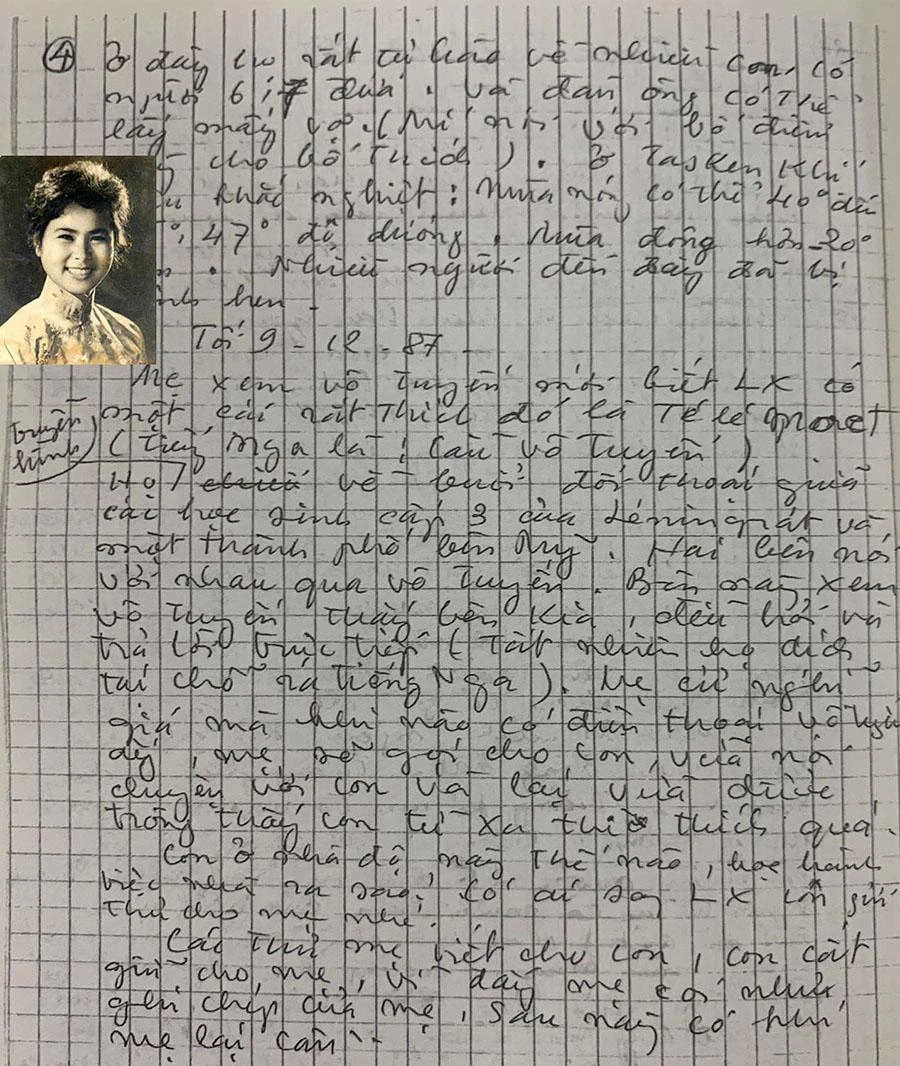 ④ Ở đây họ rất tự hào về nhiều con, có
người 6, 7 đứa. và đàn ông có thể
lấy mấy vợ. (Mí nói với bố điều
cho bố thích). Ở Tasken khí
khắc nghiệt: Mùa nóng có thể 40° đến
47° độ dương. Mùa đông hơn -20°
. Nhiều người đến đây đã bị
hen.
Tối 9 - 12 - 87 -
Mẹ xem vô tuyến mới biết LX có
một cái rất thích đó là Tê lê moct
truyền hình
(Tiếng Nga là: Cầu vô tuyến)
Họ về buổi đối thoại giữa
các học sinh cấp 3 của Lêningrát và
một thành phố bên Mỹ. Hai bên nói
với nhau qua vô tuyến. Bên này xem
vô tuyến thấy bên kia, đều hỏi và
trả lời trực tiếp (Tất nhiên họ dịch
tại chỗ ra tiếng Nga). Mẹ cứ nghĩ
giá mà hôm nào có điện thoại vô tuyến
đấy, mẹ sẽ gọi cho con, vừa nói
chuyện với con và lại vừa được
trông thấy con từ xa thì thích quá.
Con ở nhà độ này thế nào, học hành
việc nhà ra sao? Có ai sang LX con gửi
thư cho mẹ nhé.
Các thư mẹ viết cho con, con cất
giữ cho mẹ, vì đấy mẹ coi như
ghi chép của mẹ, sau này có khi
mẹ lại cần..